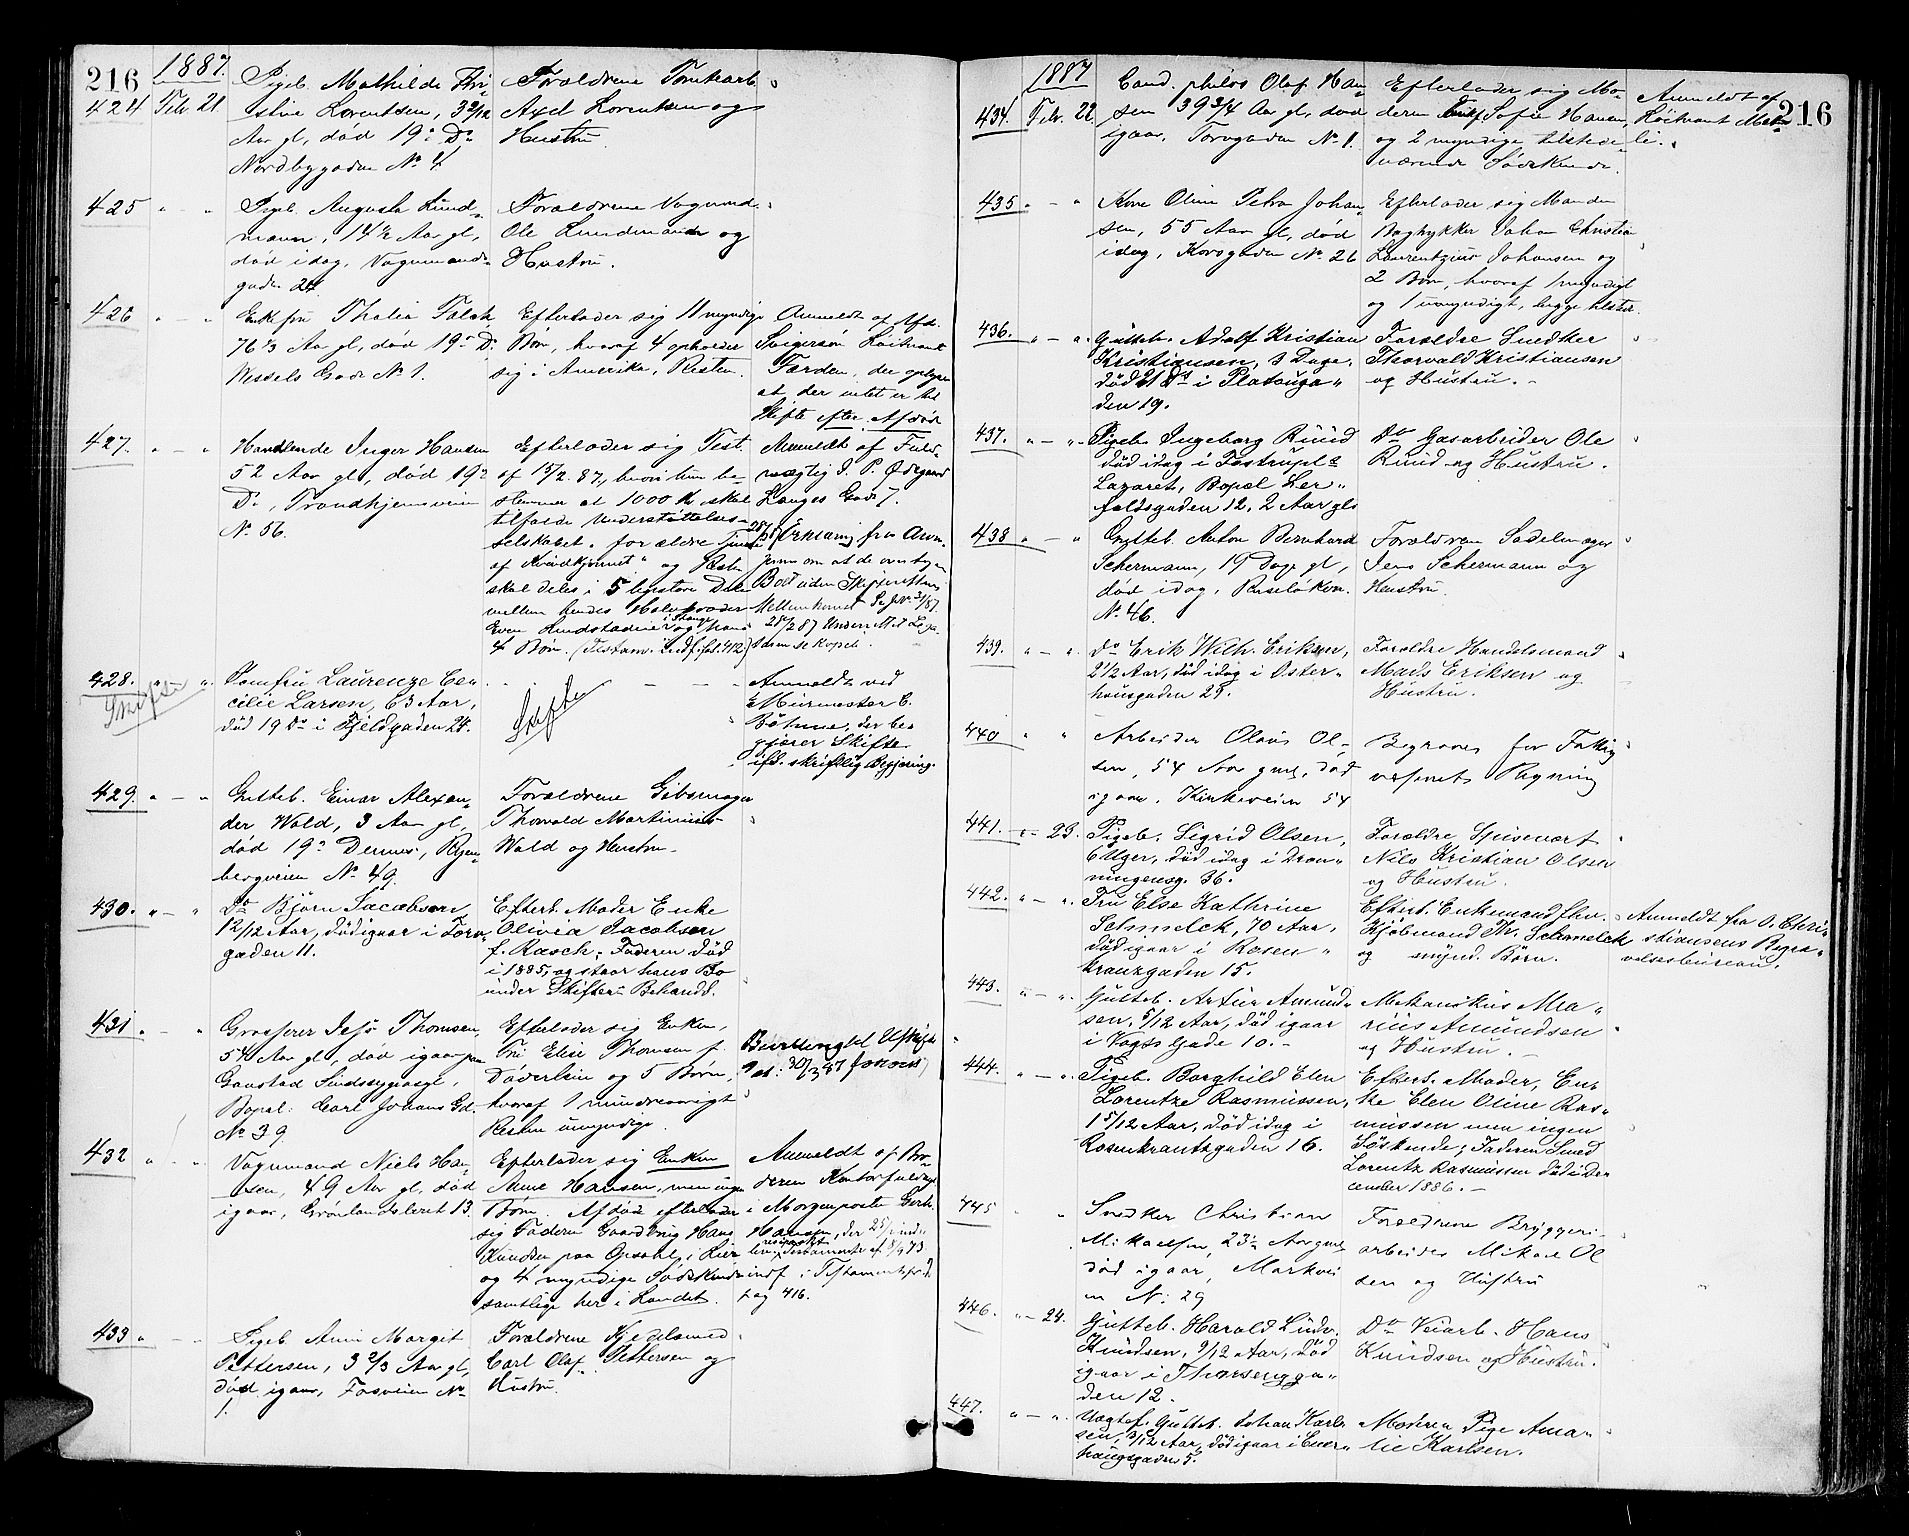 216
1887.
424 Febr. 21. Pigeb. Mathilde Thri-
stine Lorentsen, 3 2/12
Aar gl, död 19de Ds
Nordbygaden No 4.
Forældrene Tomtearb.
Axel Lorentsen og
Hustru.
425 " - " Pigeb. Augusta Lund-
mann, 1 4/12 Aar gl,
död idag, Vognmands-
gade 24.
Forældrene Vognmd.
Ole Lundmann og
Hustru.
426 " - " Enkefru Thalia Falch
76 1/3 Aar gl, död 19de Ds
Wessels Gade No 1.
Efterlader sig 11 myndige
Börn, hvoraf 4 opholder
sig i Amerika, Resten.
Anmeldt af Afd.
Svigersön Löitnant
Færden, der oplyser
at der intet er til
Skifte efter Afdöd
427. " - " Handlende Inger Hansen
52 Aar gl, död 19de
Ds, Trondhjemsveien
No 56.
Efterlader sig Test.
af 15/2 87, hvori hun be-
stemmer at 1000 Kr skal
tilfalde Understöttelses-
selskabet for ældre Tjenere
af Kvindekjönnet" og Resten
skal deles i 5 ligestore Dele
mellem hendes Halvbroder
Even Hindstadeie i Stange og hans
4 Börn. (Testam. indf. fol. 412)
Anmeldt af Fuld-
mægtig J. P. Ödegaard
Langes Gade 7.
28/2 87 Erklæring fra Arvin-
gerne om at de overtager
Boet uden Skifterettens
Mellemkomst
428. " - " Jomfru Laurenze Ce-
cilie Larsen, 63 Aar,
död 19 Ds i Fjeldgaden 24.
Skifte
Skifte
Anmeldt ved
Murmester C.
Böhme, der be-
gjærer Skifte
ifl. skriftlig Begjæring.
429. " - " Gutteb. Einar Alexan-
der Wold, 3 Aar gl,
död 19de Dennes, Kjem-
bergveien No 49.
Forældrene Gibsmager
Thorvald Martinius
Wold og Hustru.
430. " - " Do Björn Jacobsen
1 2/12 Aar, död igaar i Torv-
gaden 11.
Efterl. Moder Enke
Olivia Jacobsen
f. Rasch; Faderen död
i 1885, og staar hans Bo
under Skifter. Behandl.
431 " - " Grosserer Jess Thomsen,
54 Aar gl, död igaar paa
Gaustad Sindssygeasyl,
Bopæl: Carl Johans Gd.
No 39
Efterlader sig Enken,
Fru Elise Thomsen f.
Döderlein og 5 Börn,
hvoraf 1 mindreaarigt
Resten umyndige.
Bevilling til Uskiftet
432 " - " Vognmand Niels Han-
sen, 49 Aar gl, död
igaar, Grönlandsleret 13.
Efterlader sig Enken
Anne Hansen, men ingen
Börn. Afdöd efterlader
sig Faderen Gaardbrug Hans
Knudsen paa Opsahl, i Lier
og 4 myndige Södskende
samtlige her i Landet.
Anmeldt af Bro-
deren Kontorfuldmg.
i Morgenposten Gerh.
Hansen, der 25/2 ind-
lev. resiprokt Testamente af 8/9 73
indf. i Testamentsprot.
Pag 416.
433 " - " Pigeb. Anni Margit
Pettersen, 3 2/3 Aar gl,
död igaar, Fosveien No
1.
Forældrene Kjedelsmed
Carl Olaf Pettersen og
Hustru.
216
1887
434. Febr. 22. Cand. philos Olaf Han-
sen 39 3/4 Aar gl, död
igaar, Torvgaden No 1.
Efterlader sig Mo-
deren Enkef. Sofie Hansen,
og 2 myndige tilstede-
værende Södskende.
Anmeldt af
Löitnant
435 " - " Kone Oline Petra Johan-
sen, 55 Aar gl, död
idag, Korsgaden No 26
Efterlader sig Manden
Bogtrykker Johan Christian
Laurentzius Johansen og
2 Börn, hvoraf 1 myndigt
og 1 umyndigt, begge tilstede.
436. " - " Gutteb. Adolf Kristian
Kristiansen, 3 Dage,
död 21 Ds i Platouga-
den 19.
Forældre Snedker
Thorvald Kristiansen
og Hustru. -
437. " - " Pigeb. Ingeborg Ruud
död idag i Tostrupl.s
Lazaret, Bopæl Her-
foldsgaden 12, 2 Aar gl.
Do Gasarbeider Ole
Ruud og Hustru.
438 " - " Gutteb. Anton Bernhard
Schermann, 19 Dage gl,
död idag, Ruselökven.
No 46.
Forældrene Sadelmager
Jens Schermann og
Hustru.
439. " - " Do Erik Wilh. Eriksen,
2 1/2 Aar, död idag i Oster-
hausgaden 29.
Forældre Handelsmand
Mads Eriksen og
Hustru.
440 " " Arbeider Olaus Ol-
sen, 54 Aar gml, död
igaar. Kirkeveien 54
Begraves for Fattig-
væsenets Regning
441. " - 23. Pigeb. Sigrid Olsen,
6 Uger, död idag i Dron-
ningensg. 36.
Forældre Spisevært
Nils Kristian Olsen
og Hustru.
442. " - " Fru Else Kathrine
Schmelck, 70 Aar,
död igaar i Rosen-
kranzgaden 15.
Efterl. Enkemand fhv.
Kjöbmand Th. Schmelck
og mynd. Börn.
Anmeldt fra O. Chri-
stiansens Begra-
velsesbureau.
443. " - " Gutteb. Artur Amund-
sen, 5/12 Aar, död igaar
i Vogts Gade 10. -
Mekanikus Ma-
rius Amundsen
og Hustru. -
444. " - " Pigeb. Borghild Elen
Lorentze Rasmussen,
1 5/12 Aar, död idag i
Rosenkrantzgaden 16.
Efterl. Moder, En-
ke Elen Oline Ras-
mussen men ingen
Söskende; Faderen Smed
Lorentz Rasmussen död i De-
cember 1886. -
445 " Snedker Christian
Mikaelsen, 23 1/2 Aar gml
död igaar, Markvei
en No 29
Forældrene Bryggeri-
arbeider Mikael Ol
sen og Hustru
446. " - 24. Gutteb. Harald Ludv.
Knudsen, 9/12 Aar, död
igaar i Thorsengga-
den 12.
Do Veiarb. Hans
Knudsen og Hustru.
447. " - " Uægtef. Gutteb. Johan Karl-
sen, 3/12 Aar, död igaar i Ener-
haugsgaden 5.
Moderen, Pige Ama-
lie Karlsen.